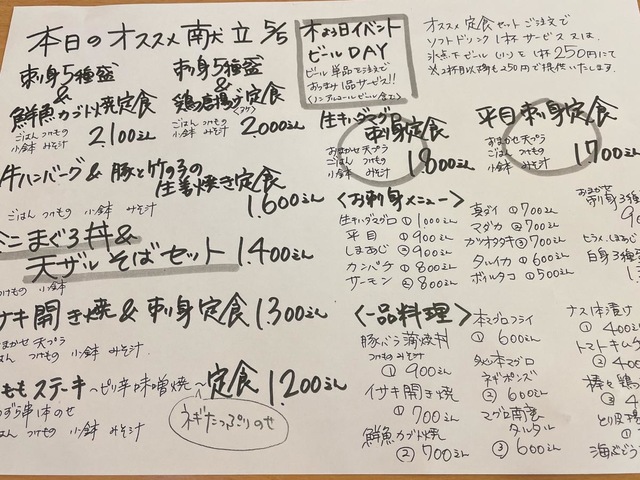 本日のオススメ献立 5/5
刺身5種盛
&
鮮魚カブト焼定食
ごはん つけもの
小鉢 みそ汁
2,100えん
刺身5種盛
&
鶏唐揚げ定食
ごはん つけもの
小鉢 みそ汁
2,000えん
牛ハンバーグ & 豚と竹の子の
生姜焼き定食
ごはん つけもの 小鉢 みそ汁
1,600えん
ミニまぐろ丼&
天ザルそばセット 1,400えん
つけもの 小鉢
サキ開き焼&刺身定食 1,300えん
まかせ 天プラ
はん つけもの 小鉢 みそ汁
ももステーキ〜ピリ辛味噌焼〜定食 1,200えん
ネギたっぷりのせ
はん つけもの 小鉢 みそ汁
木よう日イベント
ビールDAY
ビール単品ご注文で
おつまみ1品サービス!!
(ノンアルコールビール含む)
オススメ定食セットご注文で
ソフトドリンク1杯サービス 又は
氷点下ビール(小)を1杯250円にて
※2杯目以降も250円で提供いたします。
生キハダマグロ
刺身定食
おまかせ天プラ
ごはん つけもの
小鉢 みそ汁
1,800えん
平目刺身定食
おまかせ天プラ
ごはん つけもの
小鉢 みそ汁
1,700えん
<お刺身メニュー>
生キハダマグロ ① 1,000えん
平目 ① 900えん
しまあじ ② 900えん
カンパチ ① 800えん
サーモン ② 800えん
真ダイ ① 700えん
マダカ ② 700えん
カツオタタキ ③ 700えん
タルイカ ① 600えん
ボイルタコ ① 500えん
おまかせ
刺身3種盛
ヒラメ、しまあじ
白身3種盛
<一品料理>
豚バラ蒲焼丼
つけもの みそ汁
① 900えん
イサキ開き焼
① 700えん
鮮魚カブト焼
② 700えん
本マグロフライ
① 600えん
ネギポンズ
② 600えん
マグロ南蛮
タルタル
③ 600えん
ナス一本漬け
① 400
トマトキムチ
② 400
棒々鶏
③ 4
海ぶどう